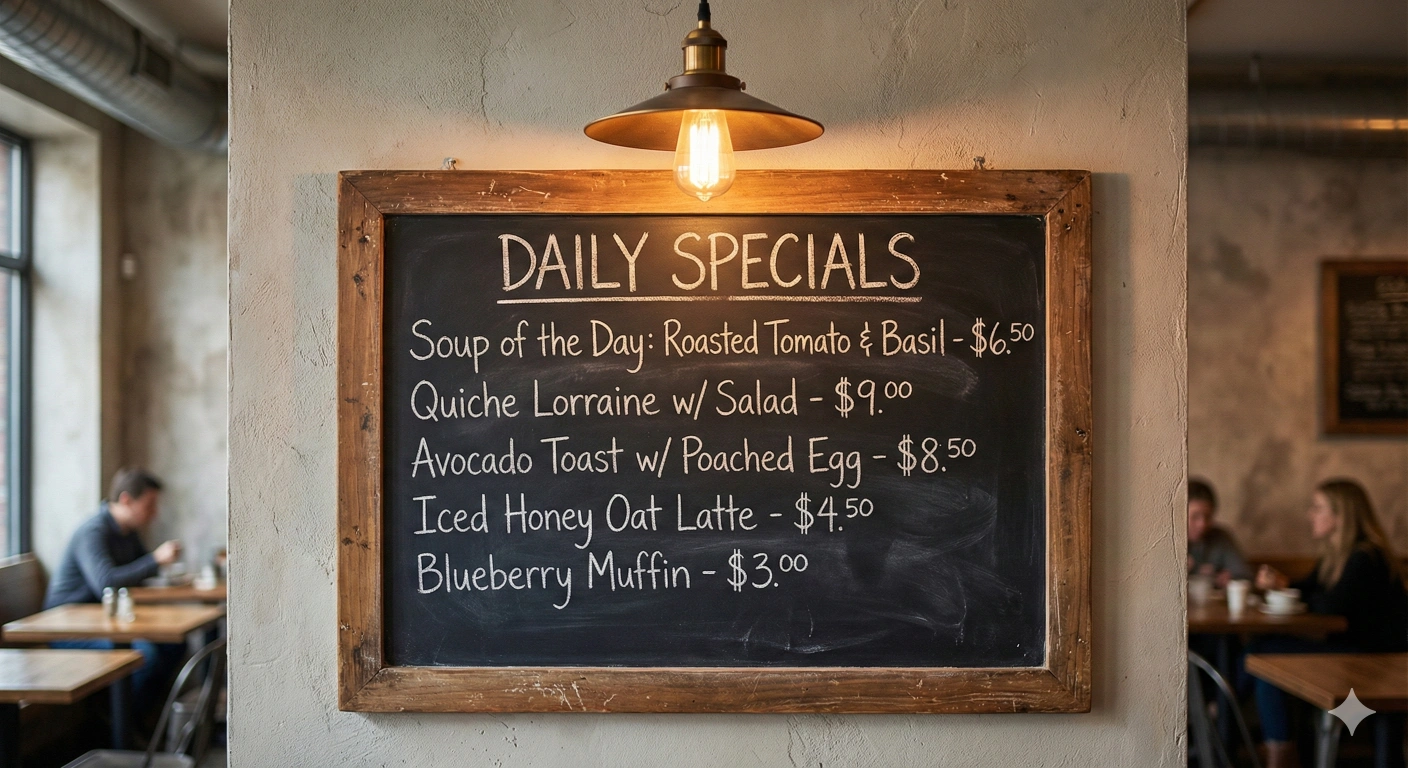 DAILY SPECIALS
Soup of the Day: Roasted Tomato & Basil - $6.50
Quiche Lorraine w/ Salad - $9.00
Avocado Toast w/ Poached Egg - $8.50
Iced Honey Oat Latte - $4.50
Blueberry Muffin - $3.00